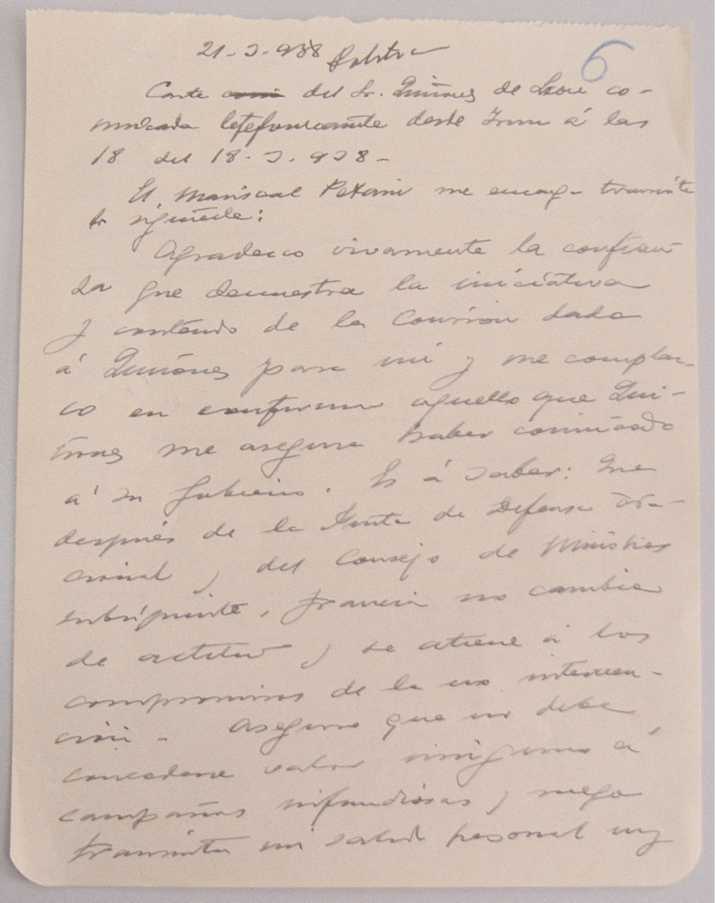 21-3-938 Política
6
Carta del Sr. Quiñones de León co-
municada telefonicamente desde Irun á las
18 del 18-3-938-
El Mariscal Petain me encarga transmita
lo siguiente:
Agradezco vivamente la confian-
za que demuestra la iniciativa
y contenido de la Comision dada
á Quiñones para mi y me complaz-
co en confirmar aquello que Qui-
ñones me asegura haber comunicado
á su Gobierno. Es á saber: Que
después de la Junta de Defensa Na-
cional y del Consejo de Ministros
subsiguiente, Francia no cambia
de actitud y se atiene á los
compromisos de la no interven-
ción. Aseguro que no debe
concederse valor ninguno á
campañas infundiosas y ruego
transmita mi saludo personal muy